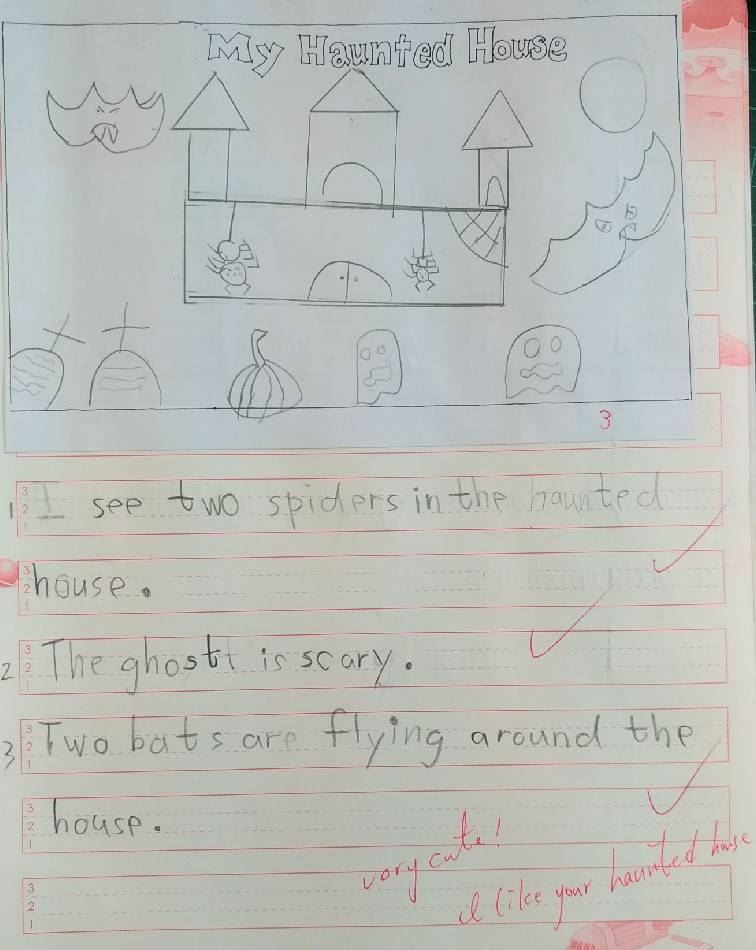 My Haunted House
3
1 I see two spiders in the haunted
house.
2 The ghostt is scary.
3 Two bats are flying around the
house.
very cute!
I like your haunted house